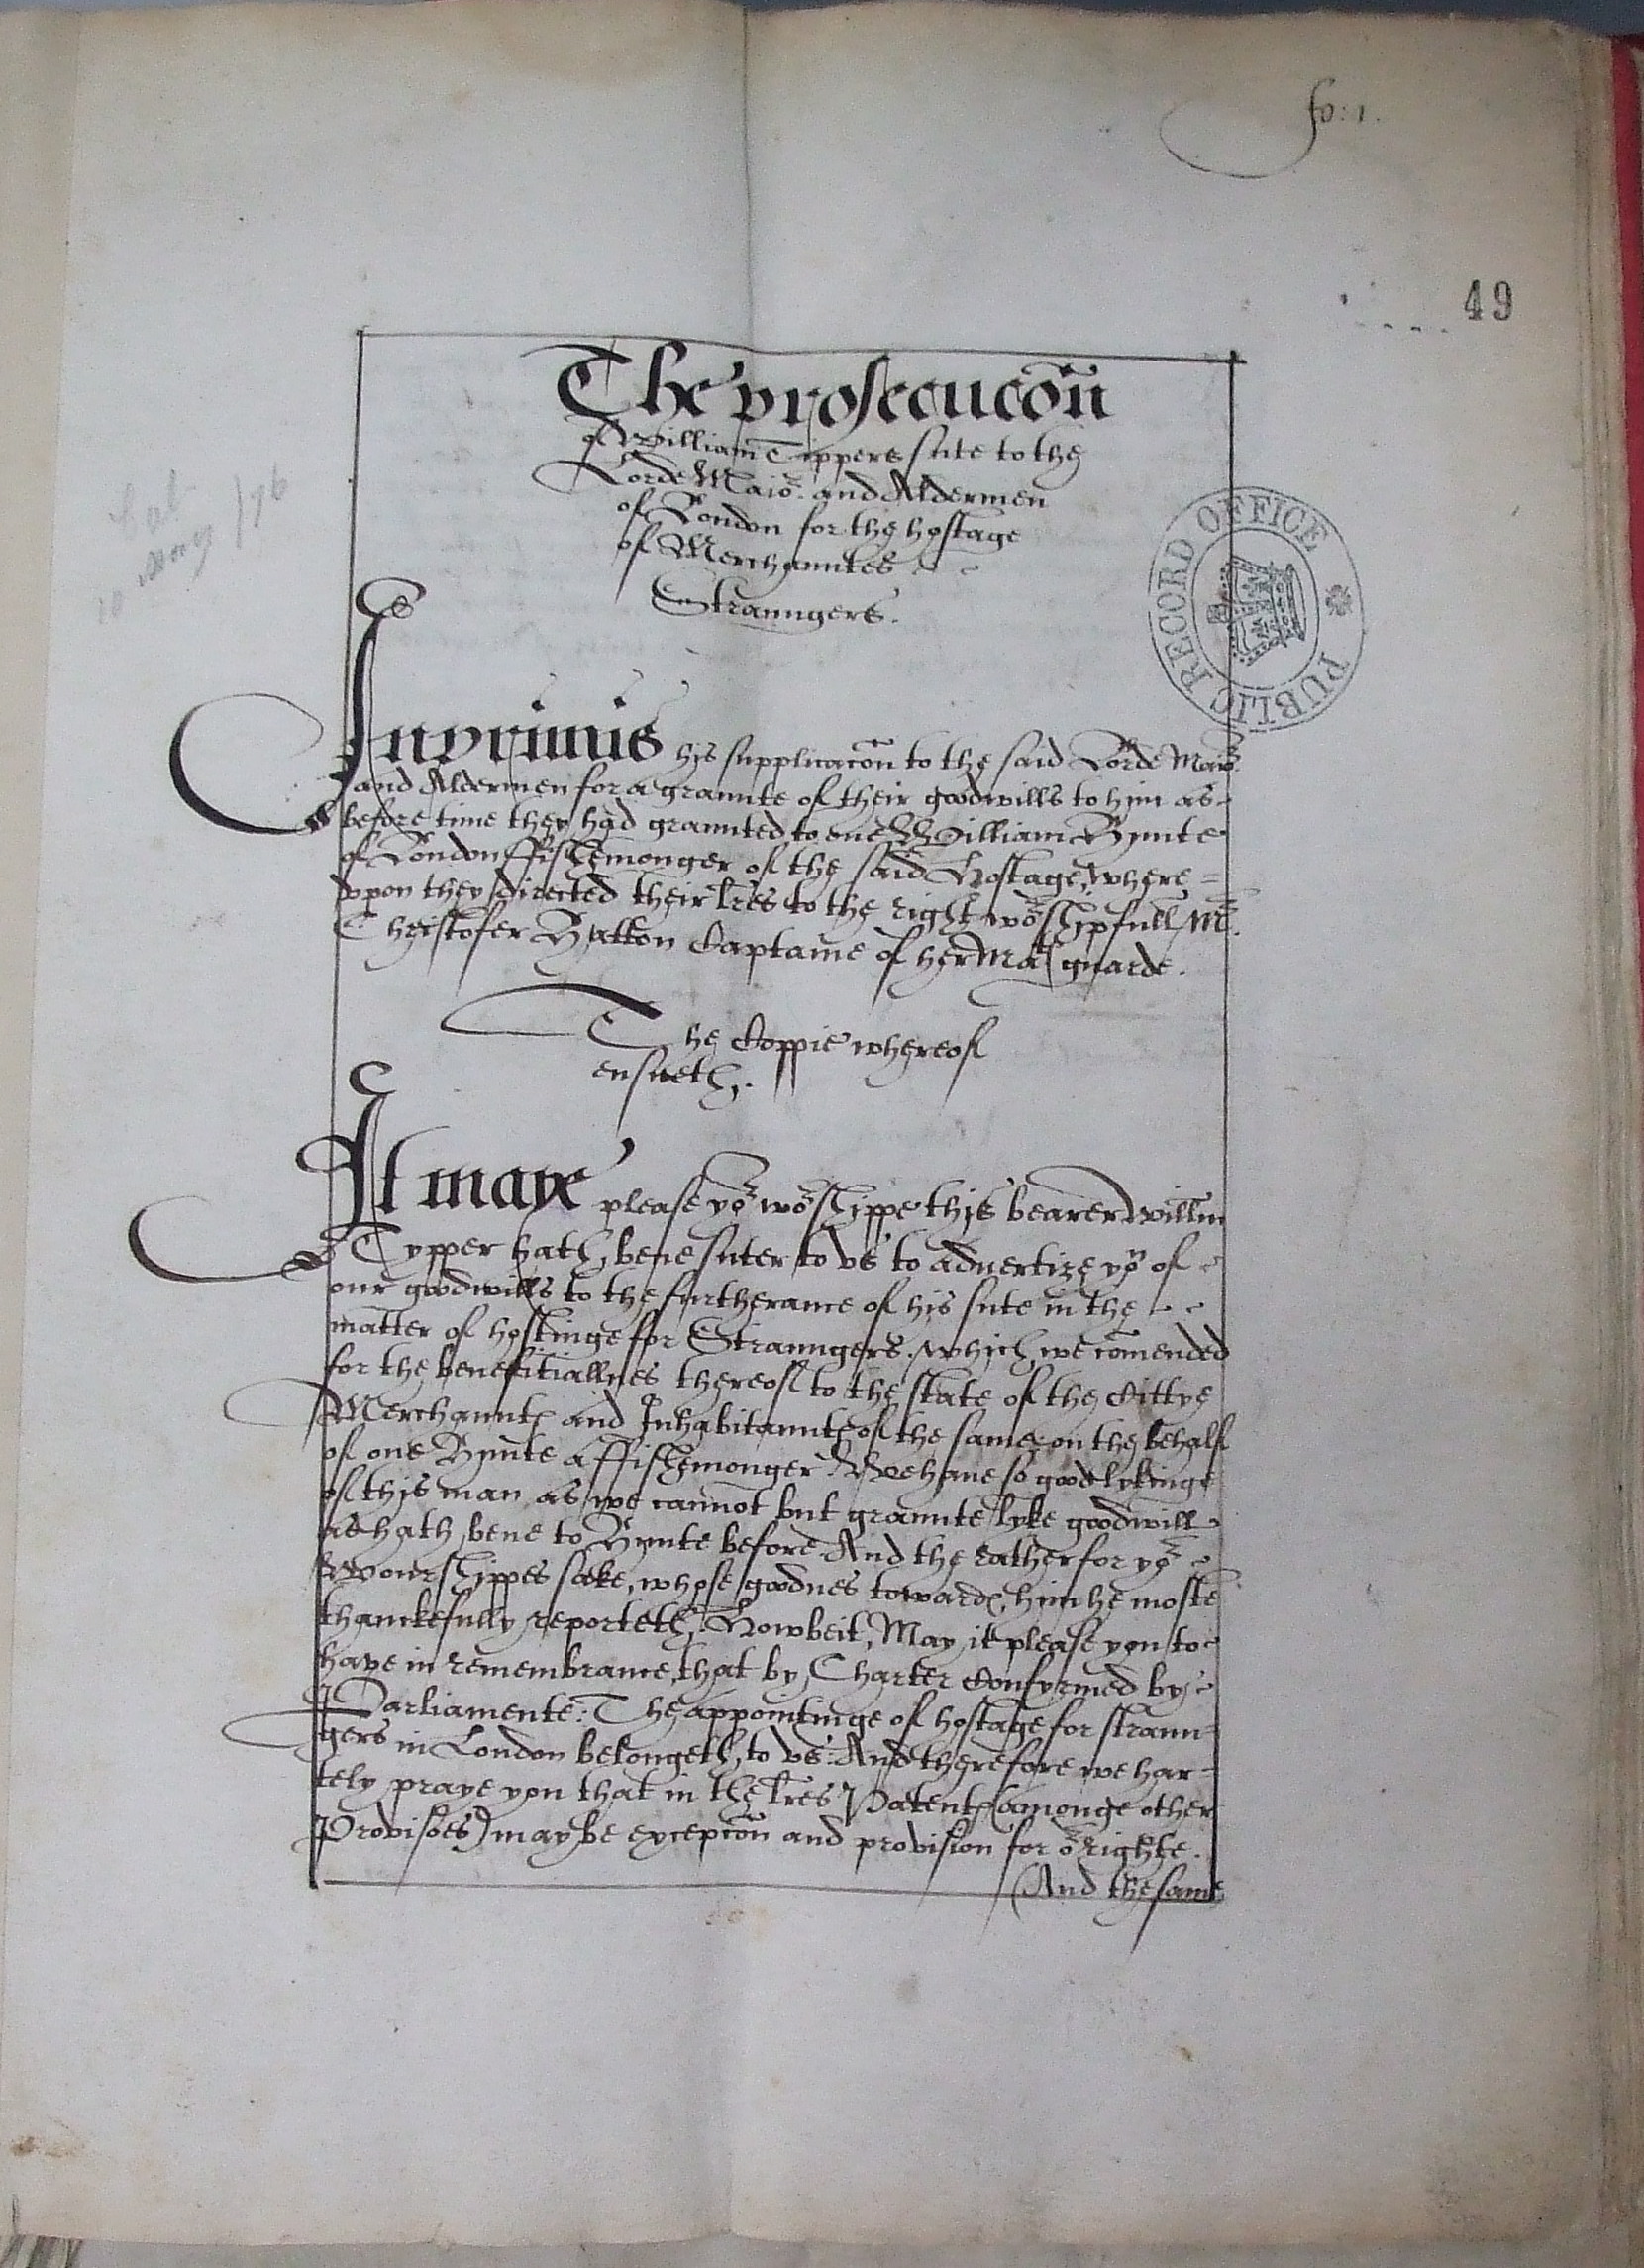 fo: 1.
49
The prosecucōn
of William Tippers sute to the
Lorde Maior and Aldermen
of London for the hostage
of Merchauntes
Straungers.
PUBLIC RECORD OFFICE
Inprimis his supplicacōn to the said Lorde Maior
and Aldermen for a graunte of their goodwills to him as
before time they had graunted to one William Bynte
of London ffishemonger of the said Hostage, where=
vpon they directed their lres to the right worshipfull Mr.
Christofer Hatton Captaine of her Mats guarde.
The Coppie whereof
ensueth.
It maye please yor worshippe this bearer Willm
Typper hath bene suter to vs to aduertize yow of
our goodwills to the furtherance of his sute in the
matter of hostinge for Straungers. which we comended
for the benefitiallnes thereof to the state of the Cittye
Merchauntes and Inhabitauntes of the same, on the behalf
of one Bynte a ffishemonger. We haue so good lykinge
of this man, as we cannot but graunte lyke goodwill
as hath bene to Bynte before And the rather for yor
Wourshippes sake, whose goodnes towardes him he moste
thanckefully reporteth. Howbeit, May it please you to
haue in remembrance, that by Charter Confyrmed by
Parliamente: The appointinge of hostage for straun=
gers in London belongeth to vs: And therefore we har=
tely praye you that in the lres Patentes (amonge other
Provisoes) may be excepcōn and provision for or righte.
And the same